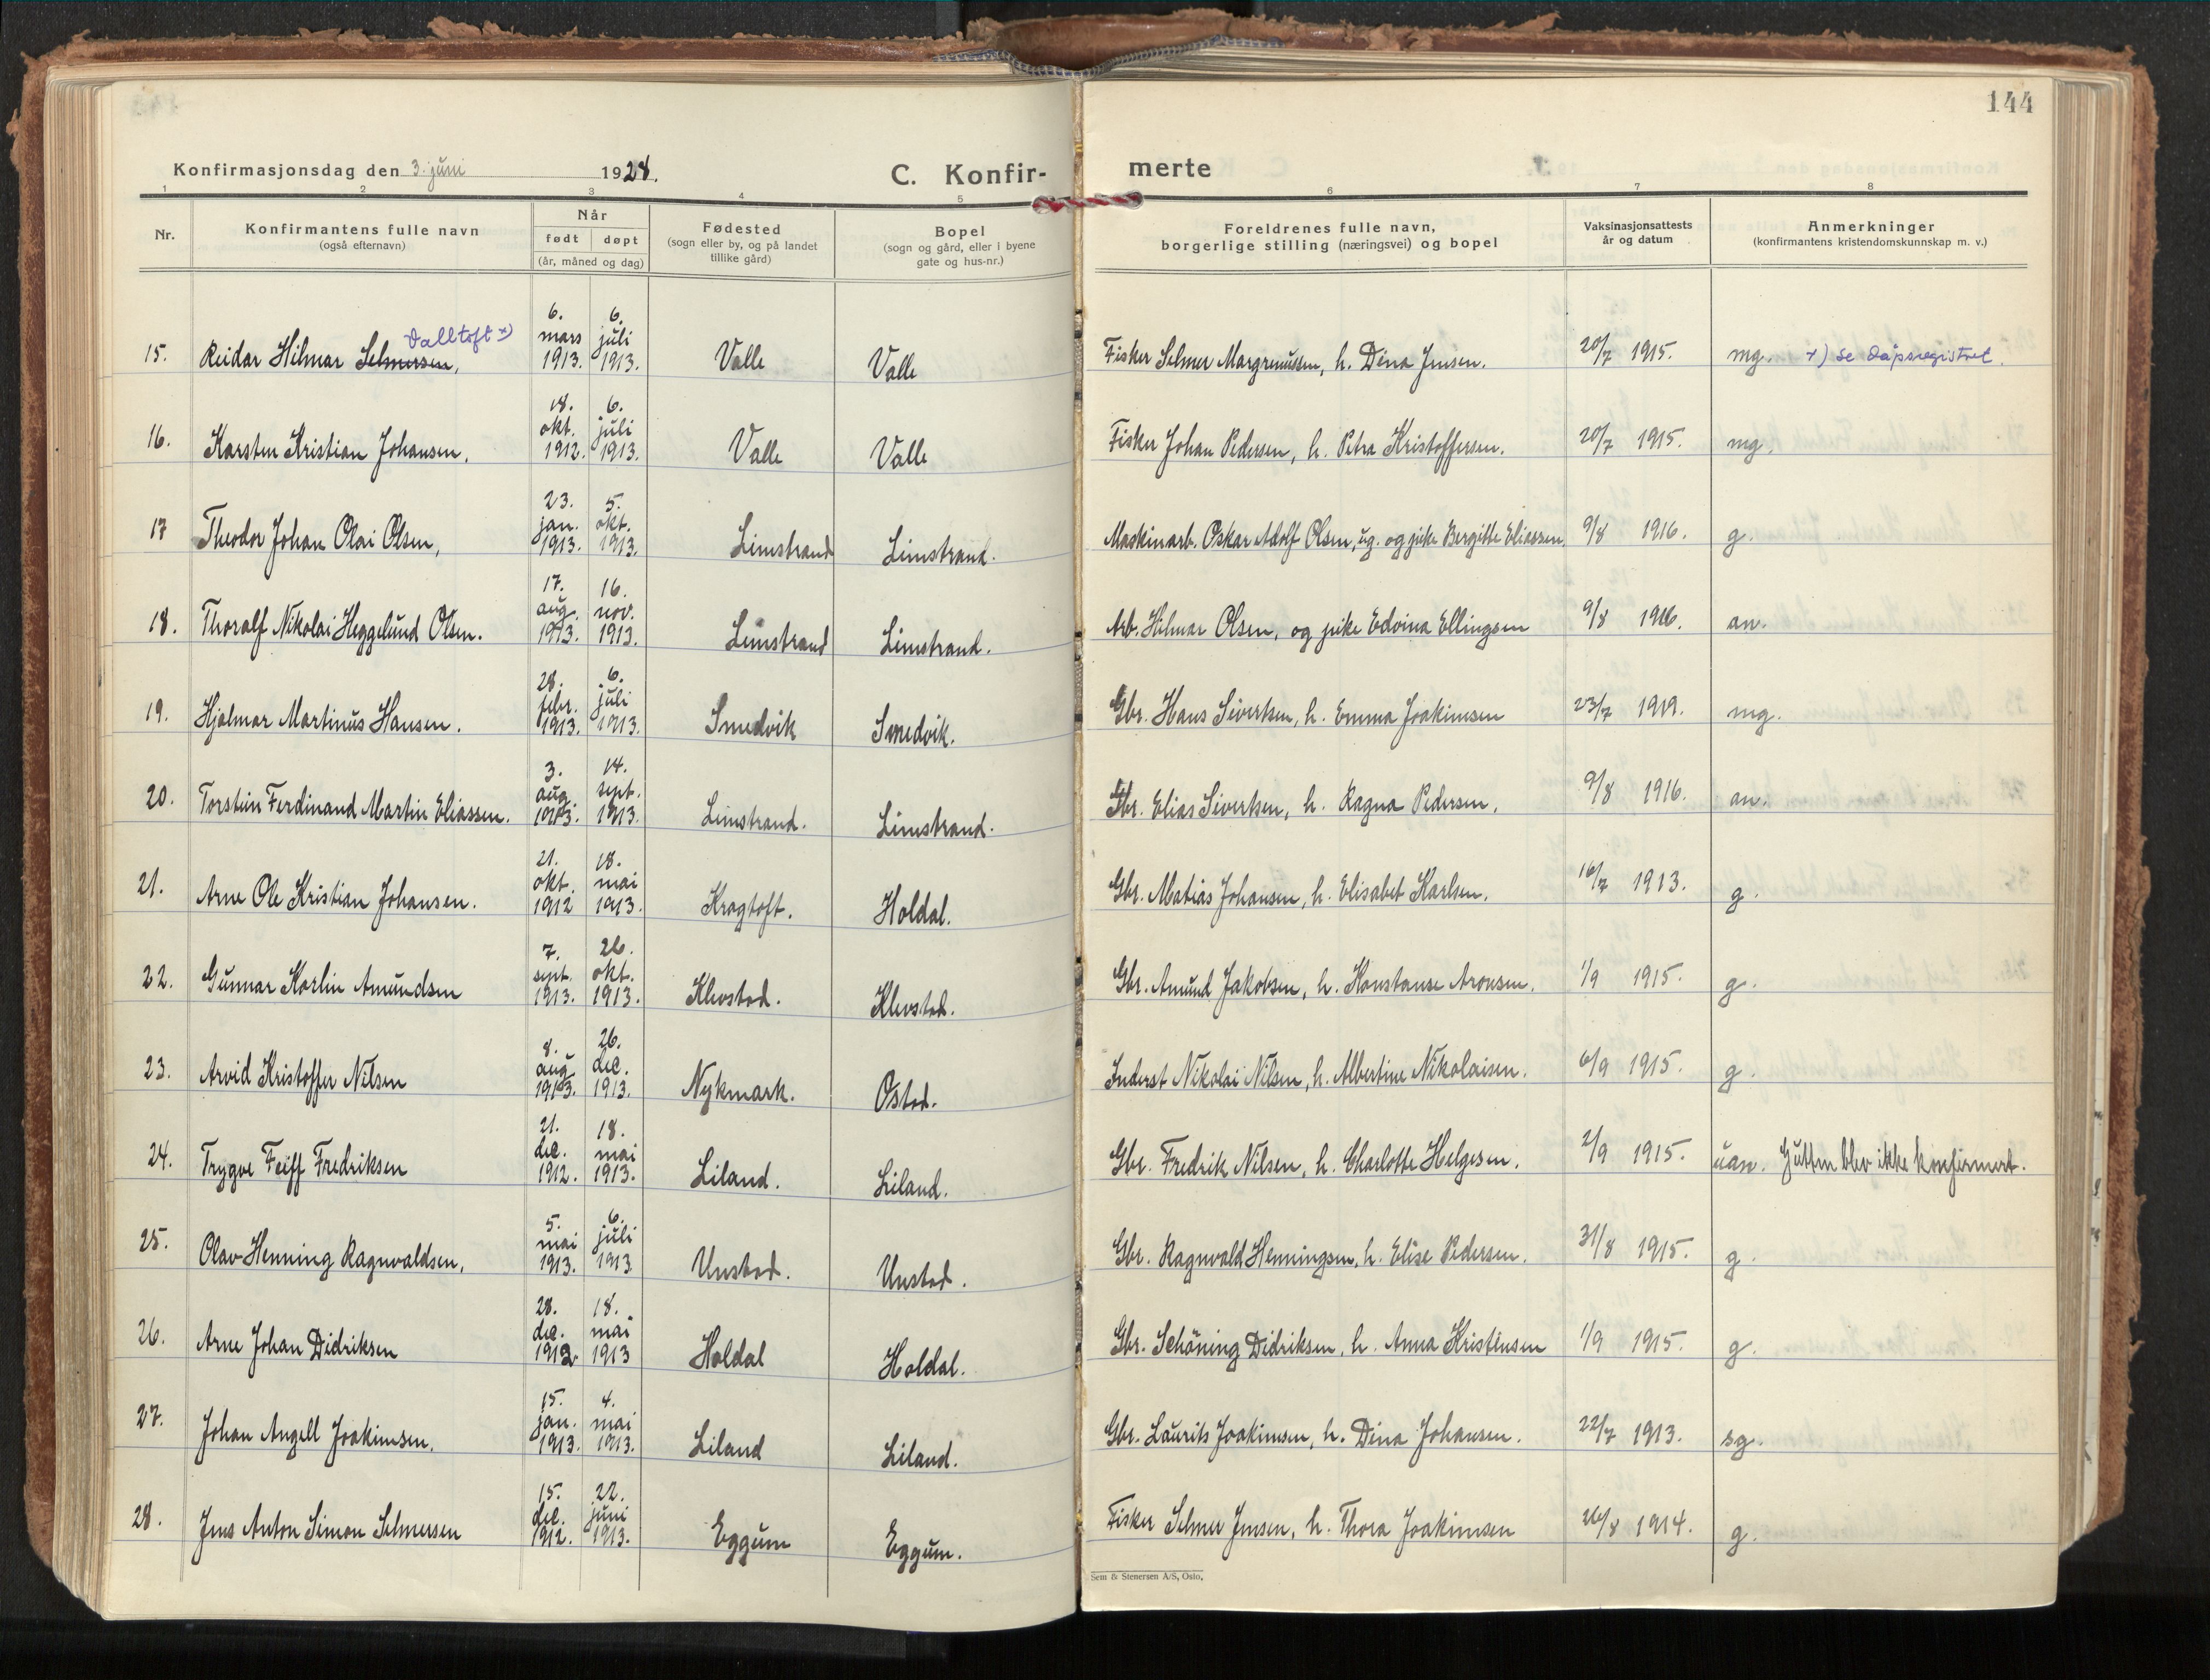 144
Konfirmasjonsdag den 3. juni 1928.
C. Konfir- merte
1 2 3 4 5 6 7 8
Nr.
Konfirmantens fulle navn
(også efternavn)
Når
født døpt
(år, måned og dag)
Fødested
(sogn eller by, og på landet
tillike gård)
Bopel
(sogn og gård, eller i byene
gate og hus-nr.)
Foreldrenes fulle navn,
borgerlige stilling (næringsvei) og bopel
Vaksinasjonsattests
år og datum
Anmerkninger
(konfirmantens kristendomskunnskap m. v.)
Valltoft x)
15. Reidar Hilmar Selmersen, 6. mars 1913. 6. juli 1913. Valle Valle Fisker Selmer Margremussen, h. Dina Jensen. 20/7 1915. mg. x) se dåpsregistret.
16. Karsten Kristian Johansen, 18. okt. 1912. 6. juli 1913. Valle Valle Fisker Johan Pedersen, h. Petra Kristoffersen. 20/7 1915. mg.
17 Theodor Johan Olai Olsen, 23. jan. 1913. 5. okt. 1913. Limstrand Limstrand. Maskinarb. Oskar Adolf Olsen, ug. og pike Bergitte Eliassen. 9/8 1916. g.
18. Thoralf Nikolai Heggelund Olsen. 17. aug. 1913. 16. nov. 1913. Limstrand Limstrand. Arb. Hilmar Olsen, og pike Edvina Ellingsen 9/8 1916. an.
19. Hjalmar Martinus Hansen. 28. febr. 1913. 6. juli 1913. Smedvik Smedvik. Gbr. Hans Sivertsen, h. Emma Joakimsen 23/7 1919. mg.
20. Torstein Ferdinand Martin Eliassen. 3. aug. 1913. 14. sept. 1913. Limstrand. Limstrand. Gbr. Elias Sivertsen, h. Ragna Pedersen, 9/8 1916. an.
21. Arne Ole Kristian Johansen. 21. okt. 1912 18. mai 1913. Kragtoft. Holdal. Gbr. Matias Johansen, h. Elisabet Karlsen. 16/7 1913. g.
22. Gunnar Karlin Amundsen 7. sept. 1913. 26. okt. 1913. Klevstad. Klevstad. Gbr. Amund Jakobsen, h. Konstanse Aronsen. 1/9 1915. g.
23. Arvid Kristoffer Nilsen 8. aug. 1913. 26. dec. 1913. Nykmark. Ostad. Inderst Nikolai Nilsen, h. Albertine Nikolaisen. 6/9 1915. g.
24. Trygve Feiff Fredriksen 21. dec. 1912. 18. mai 1913. Liland. Liland. Gbr. Fredrik Nilsen, h. Charlotte Helgesen. 2/9 1915. uan. Gutten blev ikke konfirmert.
25. Olav Henning Ragnvaldsen, 5. mai 1913. 6. juli 1913 Unstad. Unstad. Gbr. Ragnvald Henningsen, h. Elise Pedersen. 31/8 1915. g.
26. Arne Johan Didriksen 28. dec. 1912 18. mai 1913 Holdal Holdal. Gbr. Schöning Didriksen, h. Anna Kristensen 1/9 1915. g.
27. Johan Angell Joakimsen. 15. jan. 1913. 4. mai 1913. Liland Liland. Gbr. Laurits Joakimsen, h. Dina Johansen. 22/7 1913. sg.
28. Jens Anton Simon Selmersen 15. dec. 1912. 22. juni 1913. Eggum Eggum. Fisker Selmer Jensen, h. Thora Joakimsen 26/8 1914. g.
Sem & Stenersen A/S, Oslo.